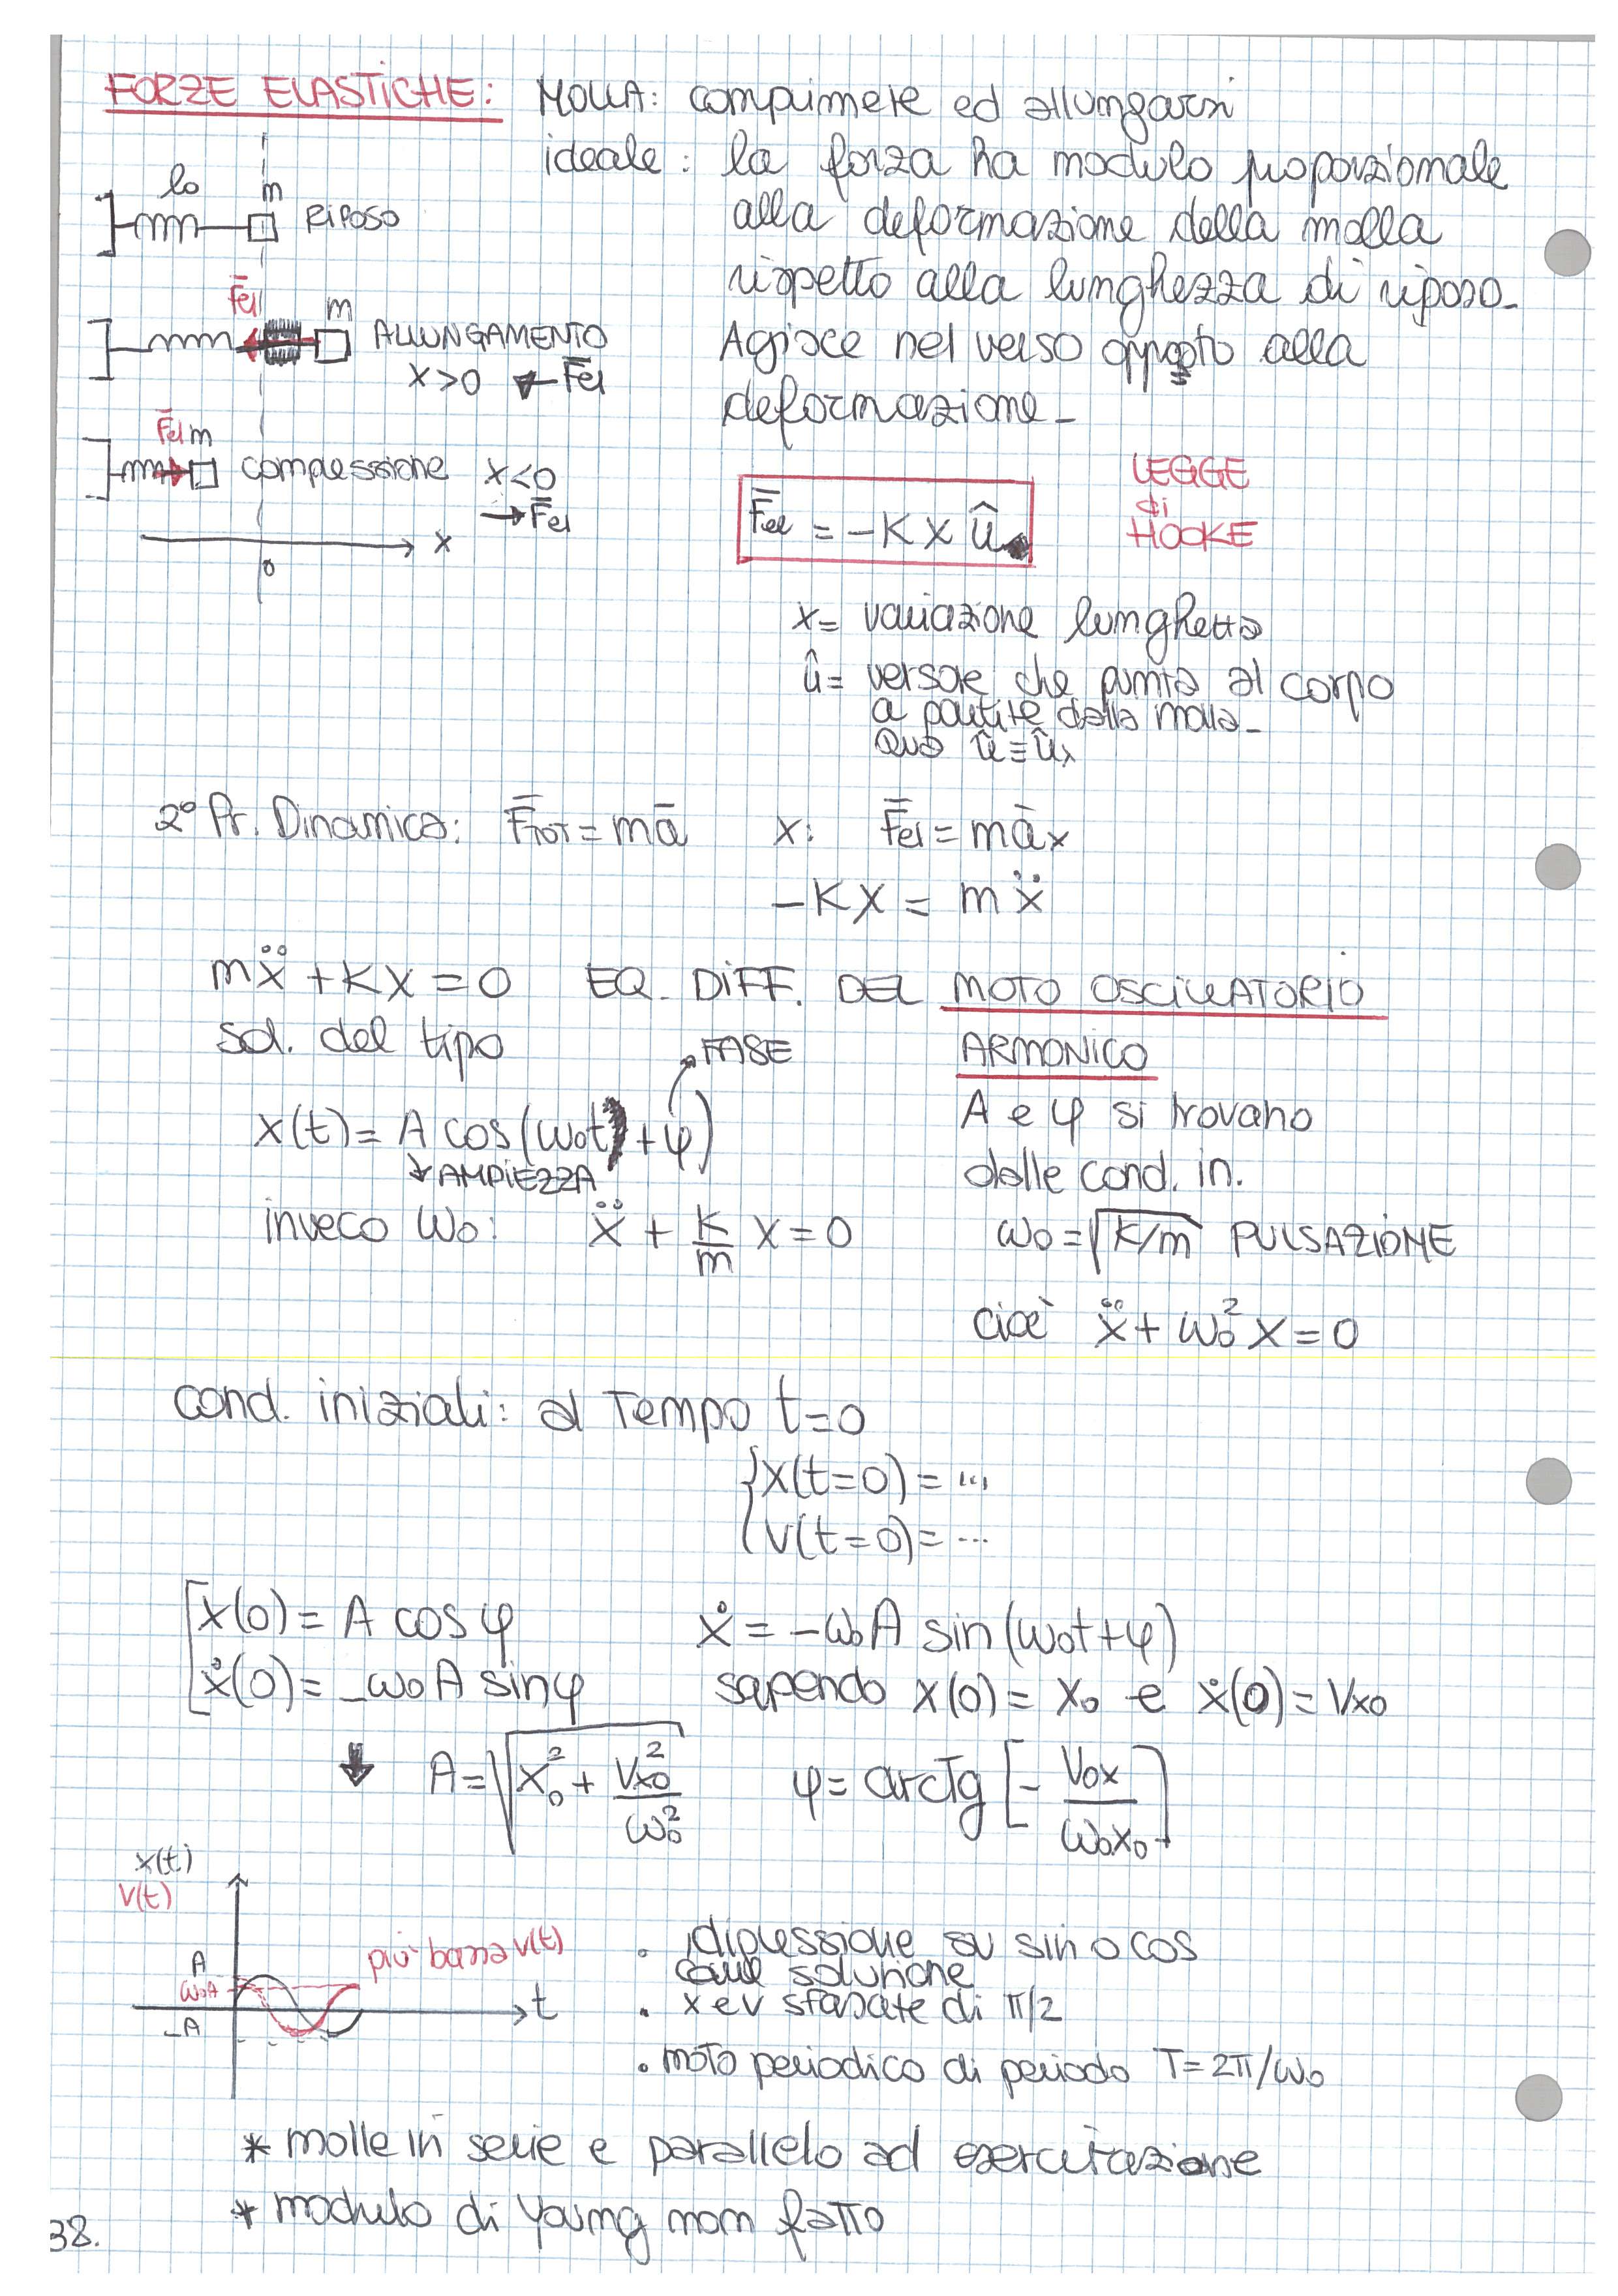 FORZE ELASTICHE: MOLLA: comprimere ed allungarsi
ideale: la forza ha modulo proporzionale
alla deformazione della molla
rispetto alla lunghezza di riposo.
Agisce nel verso opposto alla
deformazione.
lo
m
RIPOSO
F̄el
m
ALLUNGAMENTO
x>0 ← F̄el
F̄el m
compressione x<0
→ F̄el
x
0
F̄el = -K x û
LEGGE
di
HOOKE
x= variazione lunghezza
û= versore che punta al corpo
a partire dalla molla.
Qua û=ûx
2° Pr. Dinamica: F̄TOT = mā x: F̄el = māx
-Kx = mẍ
mẍ + Kx = 0 EQ. DIFF. DEL MOTO OSCILLATORIO
ARMONICO
sol. del tipo
FASE
x(t) = A cos(ω₀t + φ)
↓ AMPIEZZA
A e φ si trovano
dalle cond. in.
invece ω₀: ẍ + K/m x = 0
ω₀ = √K/m PULSAZIONE
cioè ẍ + ω₀² x = 0
cond. iniziali: al Tempo t=0
{x(t=0) = ...
v(t=0) = ...
[x(0) = A cos φ
ẋ(0) = -ω₀ A sin φ
ẋ = -ω₀A sin(ω₀t+φ)
sapendo x(0) = x₀ e ẋ(0) = Vx0
↓ A = √x₀² + Vx0²/ω₀² φ = arctg [- V0x/ω₀x₀]
x(t)
v(t)
A
ω₀A
-A
più bassa v(t)
t
. digressione su sin o cos
come soluzione
. x e v sfasate di π/2
. moto periodico di periodo T=2π/ω₀
* molle in serie e parallelo ad esercitazione
* modulo di Young non fatto
38.